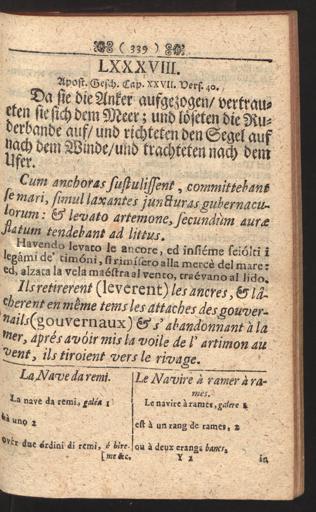 ( 339 )
LXXXVIII.
Apost. Gesch. Cap. XXVII. Vers. 40.
Da sie die Anker aufgezogen/ vertrau-
eten sie sich dem Meer; und löseten die Ru-
derbande auf/ und richteten den Segel auf
nach dem Winde/ und trachteten nach dem
Ufer.
Cum anchoras sustulissent, committebant
se mari, simul laxantes juncturas gubernacu-
lorum: & levato artemone, secundùm auræ
flatum tendebant ad littus.
Havendo levato le ancore, ed insiéme sciólti i
legâmi de' timóni, si rimísero alla mercè del mare:
ed, alzata la vela maéstra al vento, traévano al lido.
Ils retirerent (leverent) les ancres, & lâ-
cherent en même tems les attaches des gouver-
nails (gouvernaux) & s'abandonnant à la
mer, aprés avóir mis la voile de l'artimon au
vent, ils tiroient vers le rivage.
La Nave da remi.
La nave da remi, galéa 1
hà uno 2
ovér due órdini di remi, é bire-
[me &c.
Le Navire à ramer à ra-
mes.
Le navire à rames, galere 1
est à un rang de rames, 2
où à deux erangs bancs,
Y 2
in